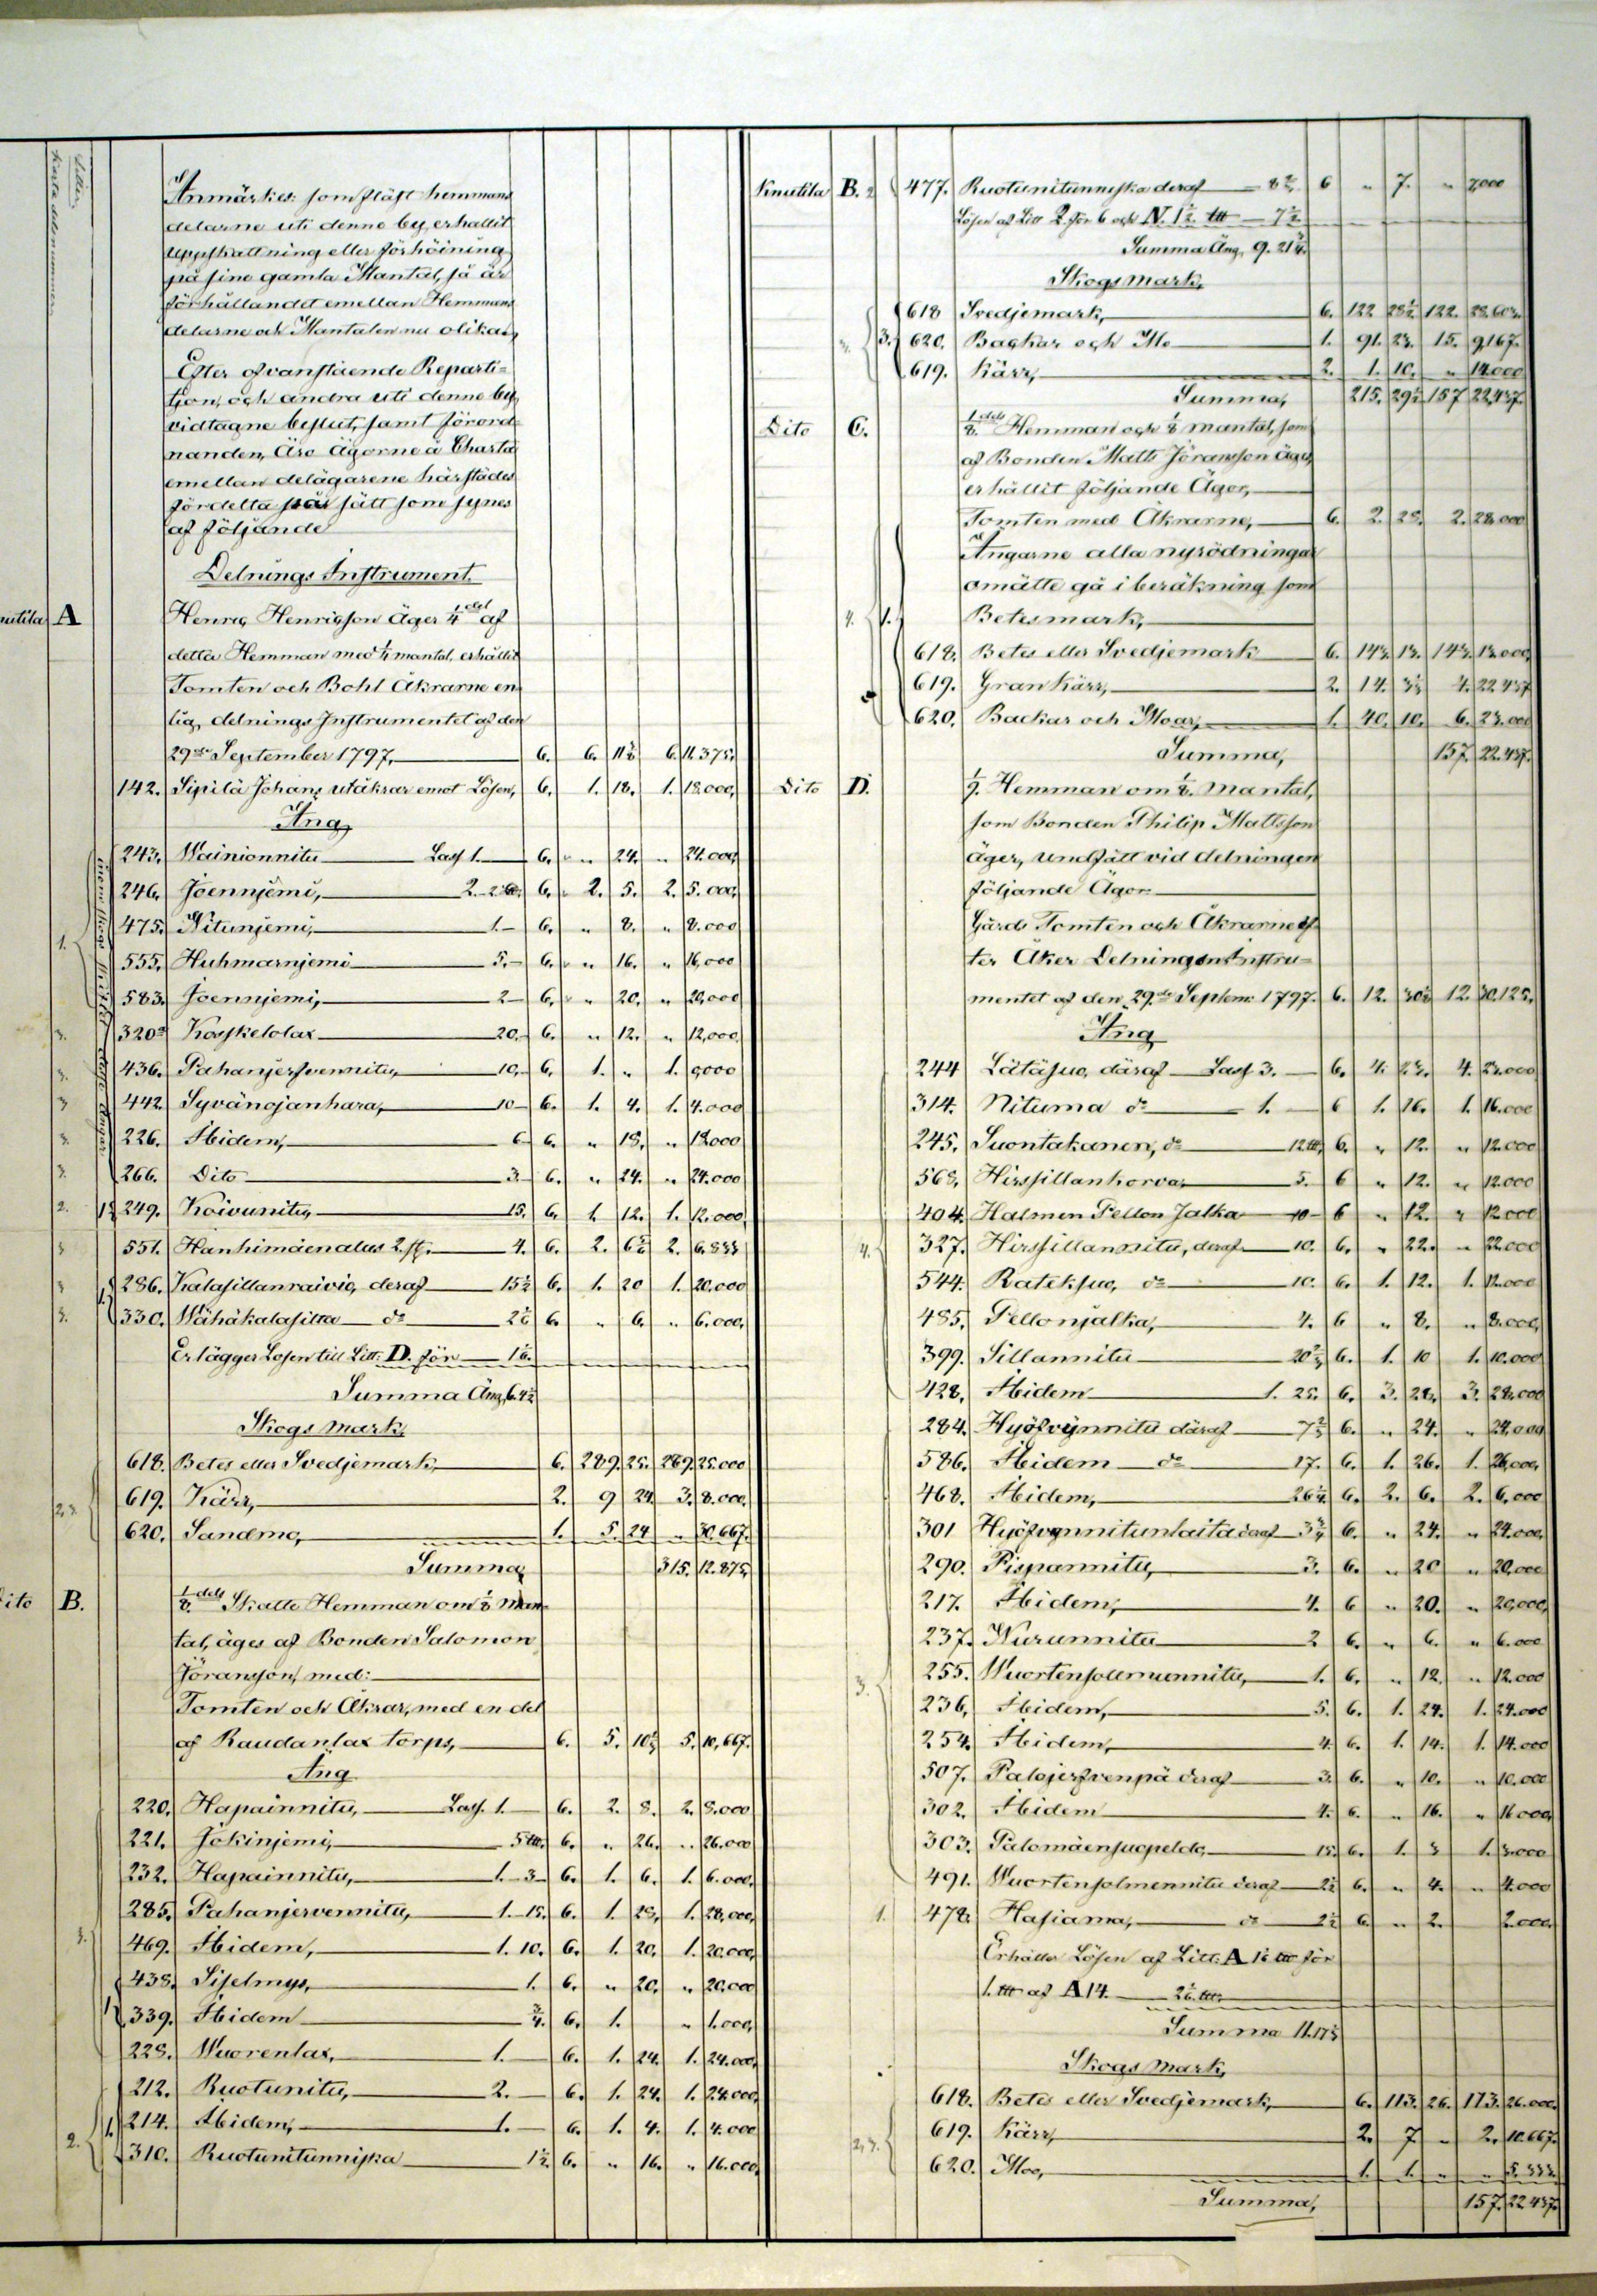 Anmärkes: som fläst hemmans
delarne uti denne by, erhållit
uppskattning eller förhöining
på sine gamla Mantal, så är
förhållandet emellan Hemmans
delarne och Mantalen nu olika,
Efter ofvanstående Reparti=
tjon, och andra uti denne by
vidtagne beslut, samt förord=
nanden, Äro Ägorne å Charta
emellan delägarene härstädes
fördelta på sätt som synes
af följande
Delnings Instrument.
nutila A Henric Henricsson Äger 1/4 del af
detta Hemman med 1/4 mantal, erhållit
Tomten och Bohl Åkrarne en
lig, delnings Instrumentet af den
29de September 1797, 6. 6. 11 3/8 6. 11.375.
142. Sipilä Johans utåkrar emot Lösen, 6. 1. 18. 1. 18.000,
Äng,
243. Wainionnitu Lass 1. 6. " 24. " 24.000,
246. Joennjemi, 2. 6. 2. 5. 2. 5.000,
475. Nitunjemi, 1. 6. " 8. " 8.000
555. Huhmarnjemi 5. 6. " 16. " 16,000
583. Joennjemi, 2 6. " 20. " 20,000
320 Koskelolax 20. 6. " 12. " 12,000
436. Pahanjerfvennitu, 10. 6. 1. " 1. 0,000
442. Syvänojanhara, 10 6. 1. 4. 1. 4.000
226. Ibidem, 6 6. " 18. " 18.000
266. Dito 3. 6. " 24. " 24.000
249. Koivunitu, 15. 6. 1. 12. 1. 12.000,
551. Hanhimäenalus 2. st. 4. 6. 2. 6 5/6 2. 6.833
286. Kalasillanraivio, deraf 15 1/2 6. 1. 20 1. 20.000
330. Wähäkalasilta do 2 1/6 6. " 6. " 6.000,
Erlägger Lösen till Litt: D. för 1 1/6.
Summa Äng, 6. 4 1/2
Skogs mark,
618. Betes eller Svedjemark, 6. 289. 25. 289. 25.000
619. Kärr, 2. 9 24 3. 8.000,
620. Sandmo, 1. 5. 24 " 30.667.
Summa, 315. 12.875,
Dito B. 1/8 dels Skatte Hemman om 1/8 Man=
tal, äges af Bonden Salomon
Jöransson, med:
Tomten och Åkrar, med en del
af Raudanlax torps, 6. 5. 10 2/3 5. 10,667.
Äng
220. Hapainnitu, Lass. 1. 6. 2. 8. 2. 8.000
221. Jokinjemi, 5 6. " 26. " 26.000
232. Hapainnitu, 1. 3 6. 1. 6. 1. 6.000,
285. Pahanjervennitu, 1. 15. 6. 1. 28, 1. 28,000,
469. Ibidem, 1. 10. 6. 1. 20, 1. 20.000,
438. Siselmys, 1. 6. " 20, " 20.000
339. Ibidem 3/4. 6. 1. " 1.000,
228. Wuorenlax, 1. 6. 1. 24. 1. 24.000,
212. Ruotunitu, 2. 6. 1. 24. 1. 24.000,
214. Ibidem, 1. 6. 1. 4. 1. 4.000
310. Ruotunitunniska 1 1/2. 6. " 16. " 16.000,
Knutila B. 477. Ruotunitunniska deraf 8 6 " 7. " 7,000
Lösen af Litt 2 för 6 och N. 1 1/2 7 1/2
Summa Äng, 9. 21
Skogs mark,
618 Svedjemark, 6. 122 28 122. 28.603.
620. Backar och Mo 1. 91. 23. 15. 9.167.
619. Kärr, 2. 1. 10. " 14.000
Summa, 215. 29 157 22,437.
Dito C. 1/8 dels Hemman och 1/8 mantal, som
af Bonden Matts Jöransson äges,
erhållit följande Ägor,
Tomten med Åkrarne, 6. 2. 28. 2. 28.000
Ängarne alla nyrödningar
omätte gå i beräkning som
Betesmark,
618. Betes eller Svedjemark 6. 143. 13. 143. 13.000,
619. Gran Kärr, 2. 14. 3 1/3 4. 22.437
620. Backar och Moar, 1. 40. 10. 6. 23.000
Summa, 157. 22.437.
Dito D. Hemman om 1/8. Mantal,
som Bonden Philip Mattsson
äger, undfått vid delningen
följande Ägor
Gårds Tomten och Åkrarne ef
ter Åker Delnings Instru=
mentet af den 29de Septem: 1797. 6. 12. 30 1/8 12. 30.125.
Äng
244 Lätäsuo, däraf Lass 3. 6. 4. 23. 4. 23.000
314. Nituma do 1. 6 1. 16. 1. 16.000
245. Suontakanen, do 12 6. " 12. " 12.000
568. Hirssillankorva, 5. 6 " 12. " 12.000
404. Halmen Pellon Jalka 10 6 " 12. " 12.000
327. Hirssillannitu, deraf 10. 6. " 22. " 22.000
544. Rateksuo, do 10. 6. 1. 12. 1. 12.000
485. Pellonjalka, 4. 6 " 8. " 8.000,
399. Sillannitu 20 2/3 6. 1. 10 1. 10.000
428. Ibidem 1. 25. 6. 3. 28. 3. 28,000
284. Hyöfvynnitu däraf 7 6. " 24. " 24,000
586. Ibidem do 17. 6. 1. 26. 1. 26,000,
468. Ibidem, 26 6. 2. 6. 2. 6,000
301 Hyöfvynnitunlaita deraf 3 6. " 24. " 24.000,
290. Pispannitu, 3. 6. " 20 " 20,000
217. Ibidem, 4. 6 " 20. " 20,000,
237. Nurunnitu 2 6. " 6. " 6.000
255. Wuortensolmennitu, 1. 6. " 12. " 12.000
236. Ibidem, 5. 6. 1. 24. 1. 24.000
254. Ibidem, 4. 6. 1. 14. 1. 14.000
507. Palojerfvenpä deraf 3. 6. " 10. " 10.000
302. Ibidem 4. 6. " 16. " 16000,
303. Palomäensuopeldo, 15. 6. 1. 3 1. 3.000
491. Wuortensolmennitu deraf 2 6. " 4. " 4.000
478. Hasiama, do 2 6. " 2. 2.000,
Erhåller Lösen af Litt. A för
1. af A 14.
Summa 11.
Skogs mark,
618. Betes eller Svedjemark, 6. 113. 26. 113. 26.000,
619. Kärr, 2. 7. " 2. 10.667.
620. Moo, 1. 1. " " 5.333.
Summa, 157. 22.437.